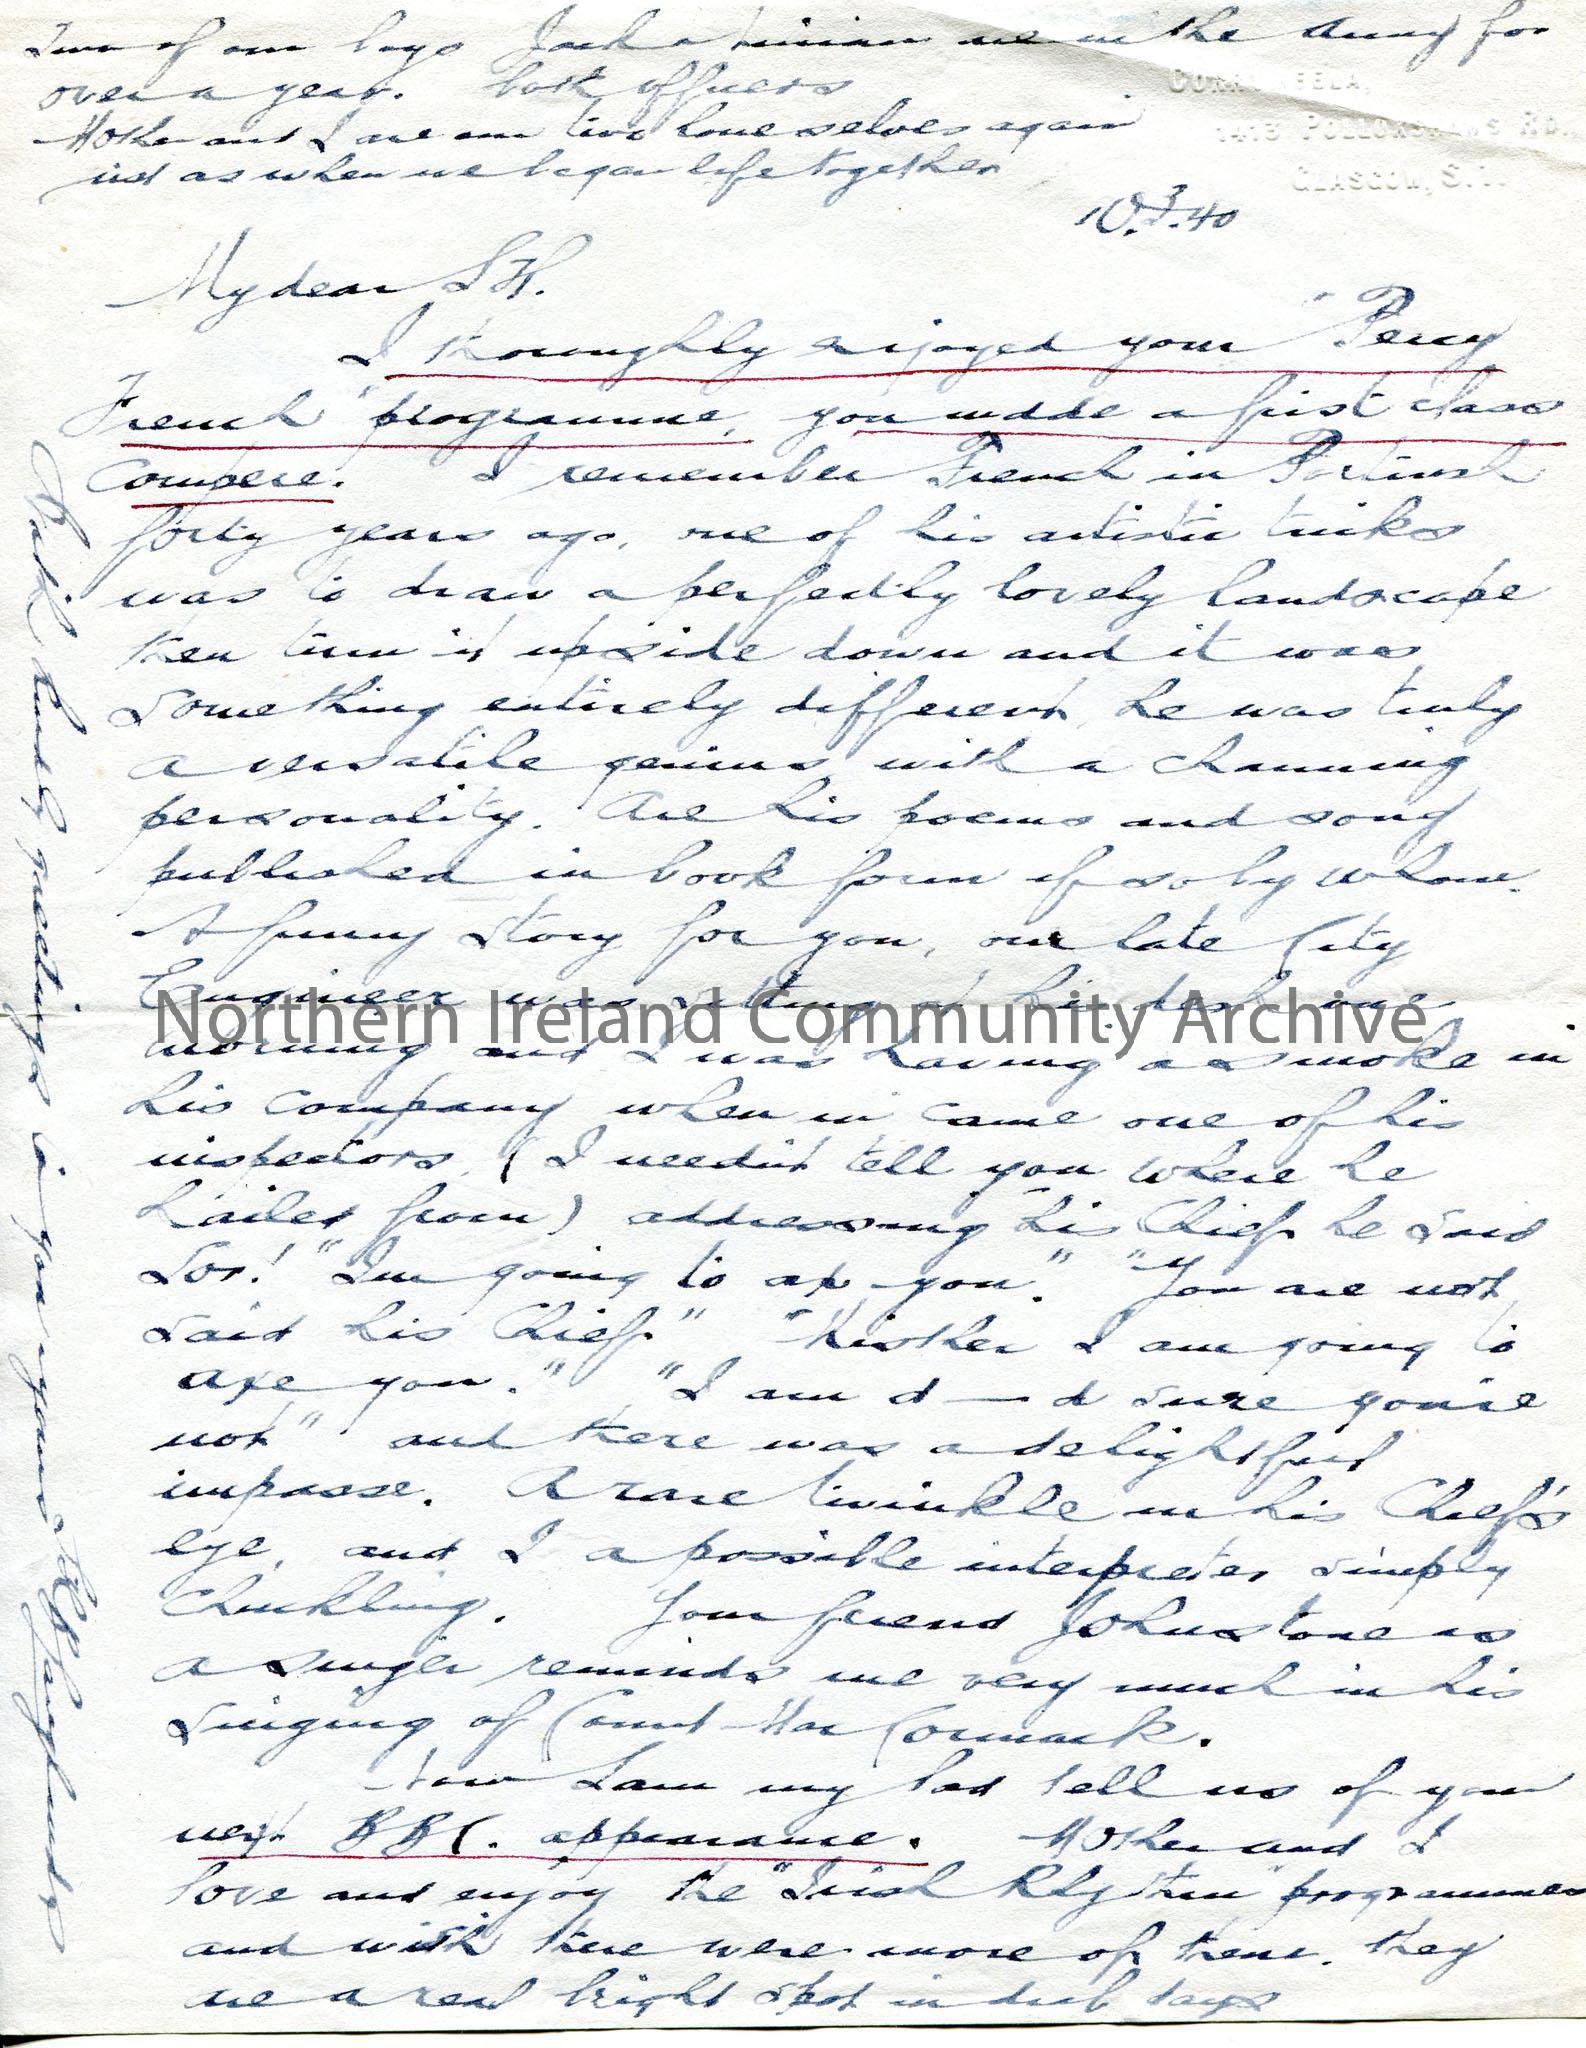 Two of our boys Jack & Vivian are in the Army for
over a year. both officers
Mother and I are our two lone selves again
just as when we began life together
1413 Pollokshaws Rd.
Glasgow, S.1.
10.3.40
My dear S.H.
I thoroughly enjoyed your "Percy
French" programme, you made a first class
compere. I remember French in Portrush
forty years ago, one of his artistic tricks
was to draw a perfectly lovely landscape
then turn it upside down and it was
something entirely different, he was truly
a versatile genius with a charming
personality. Are his poems and song
published in book form if so by whom.
A funny story for you, our late City
Engineer was sitting at his desk one
Northern Ireland Community Archive
morning and I was having a smoke in
his company when in came one of his
inspectors, (I needn't tell you where he
hailed from) addressing his Chief he said
Sor! "I'm going to ax you." "You are not
said his Chief" "Mister I am going to
axe you." "I am d—d sure you're
not" and there was a delightful
impasse. A rare twinkle in his Chief's
eye, and I a possible interpreter simply
chuckling. Your friend Johnstone as
a singer reminds me very much in his
singing of Count MacCormack.
Now Sam my lad tell us of your
next B B C. appearance. Mother and I
love and enjoy the "Irish Rhythm" programmes
and wish there were more of them. they
are a real bright spot in drab days
With kindly greetings I am yours